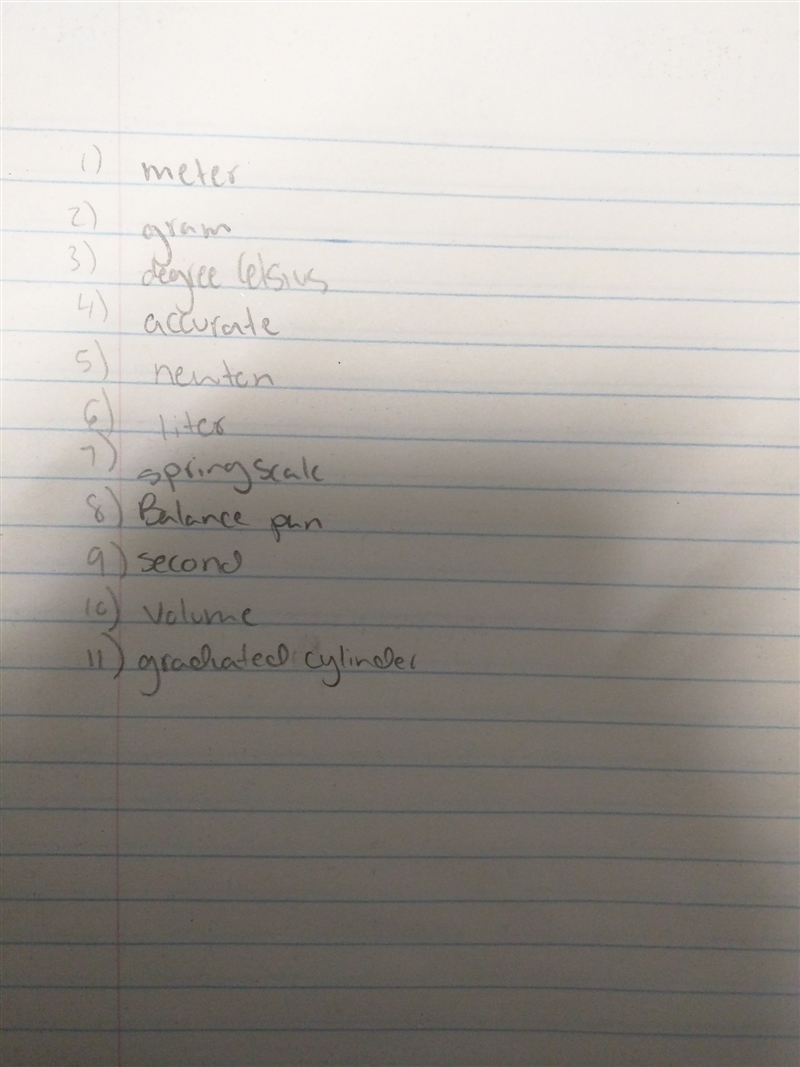 1) meter
2) gram
3) degree Celsius
4) accurate
5) newton
6) liter
7) spring scale
8) Balance pan
9) second
10) Volume
11) graduated cylinder